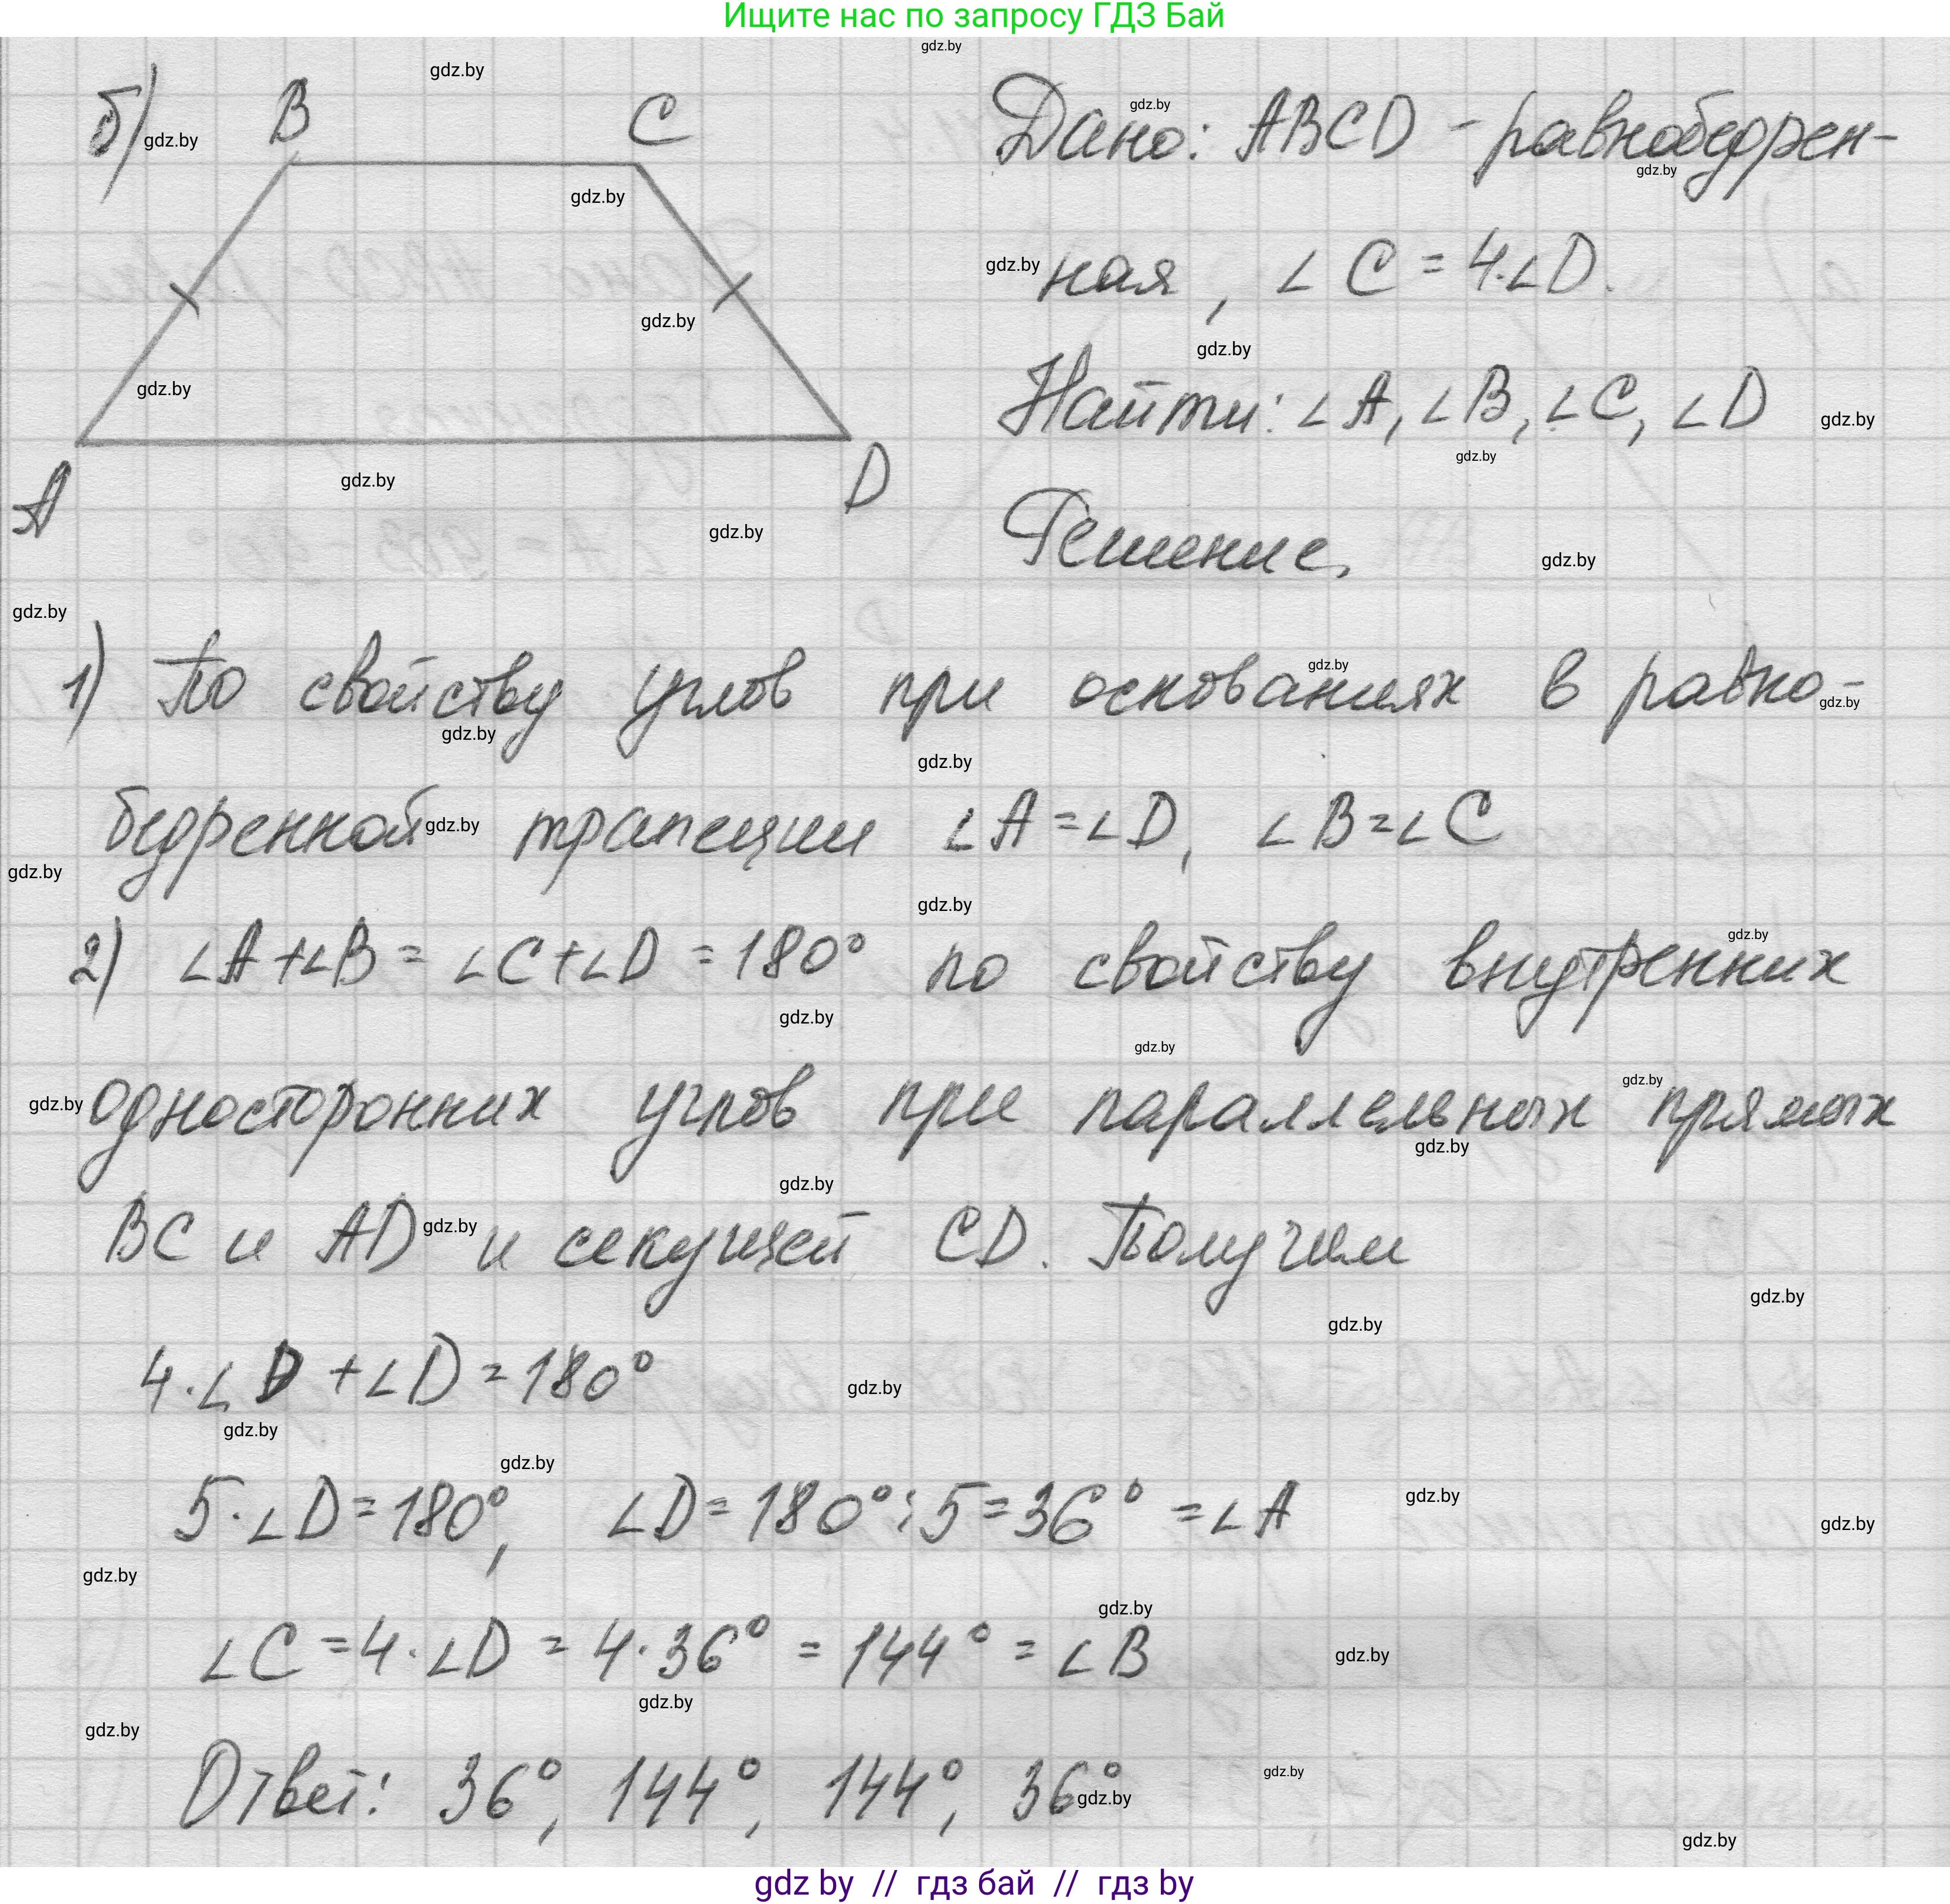 Ищите нас по запросу ГДЗ Бай
б)
B
C
A
D
Дано: ABCD - равнобедрен-
ная, ∠C = 4·∠D.
Найти: ∠A, ∠B, ∠C, ∠D
Решение.
1) По свойству углов при основаниях в равно-
бедренной трапеции ∠A = ∠D, ∠B = ∠C
2) ∠A + ∠B = ∠C + ∠D = 180° по свойству внутренних
односторонних углов при параллельных прямых
BC и AD и секущей CD. Получим
4·∠D + ∠D = 180°
5·∠D = 180°, ∠D = 180° : 5 = 36° = ∠A
∠C = 4·∠D = 4·36° = 144° = ∠B
Ответ: 36°, 144°, 144°, 36°
gdz by // гдз бай // гдз by